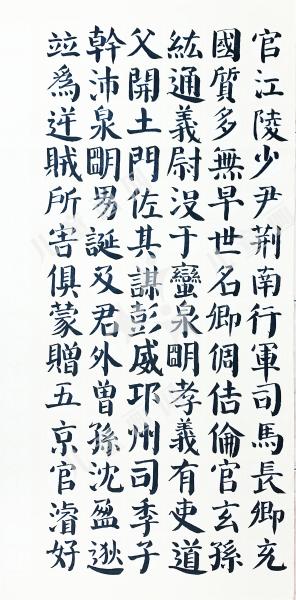 官江陵少尹荆南行軍司馬長卿充
國質多無早世名卿倜佶倫官玄孫
紘通義尉没于蠻泉明孝義有吏道
父開土門佐其謀彭威邛州司季子
幹沛泉明男誕及君外曾孫沈盈逖
竝爲逆賊所害俱蒙贈五京官濬好